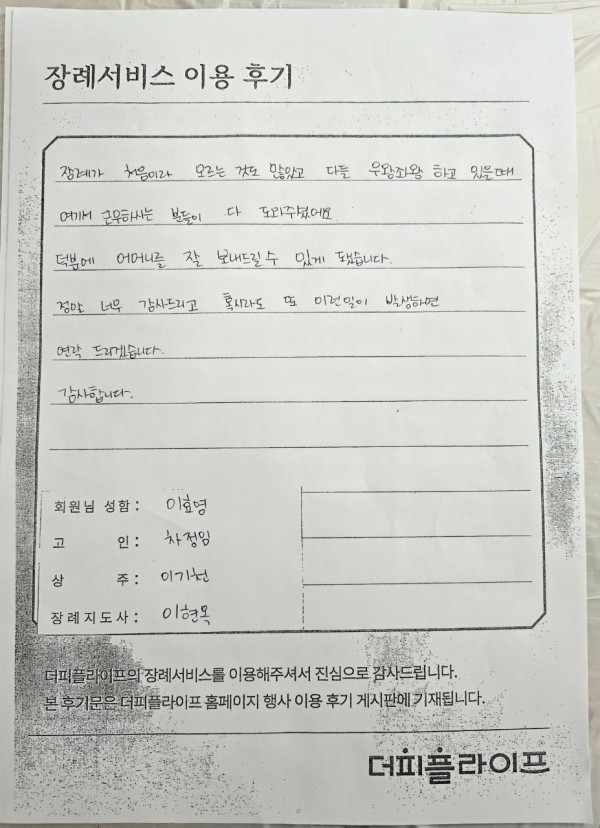 장례서비스 이용 후기
장례가 처음이라 모르는 것도 많았고 다들 우왕좌왕 하고 있을때
여기서 근무하시는 분들이 다 도와주셨어요
덕분에 어머니를 잘 보내드릴수 있게 됐습니다.
정말 너무 감사드리고 혹시라도 또 이런일이 발생하면
연락 드리겠습니다.
감사합니다.
회원님 성함 : 이효영
고 인 : 차정임
상 주 : 이기천
장례지도사 : 이현목
더피플라이프의 장례서비스를 이용해주셔서 진심으로 감사드립니다.
본 후기문은 더피플라이프 홈페이지 행사 이용 후기 게시판에 기재됩니다.
더피플라이프